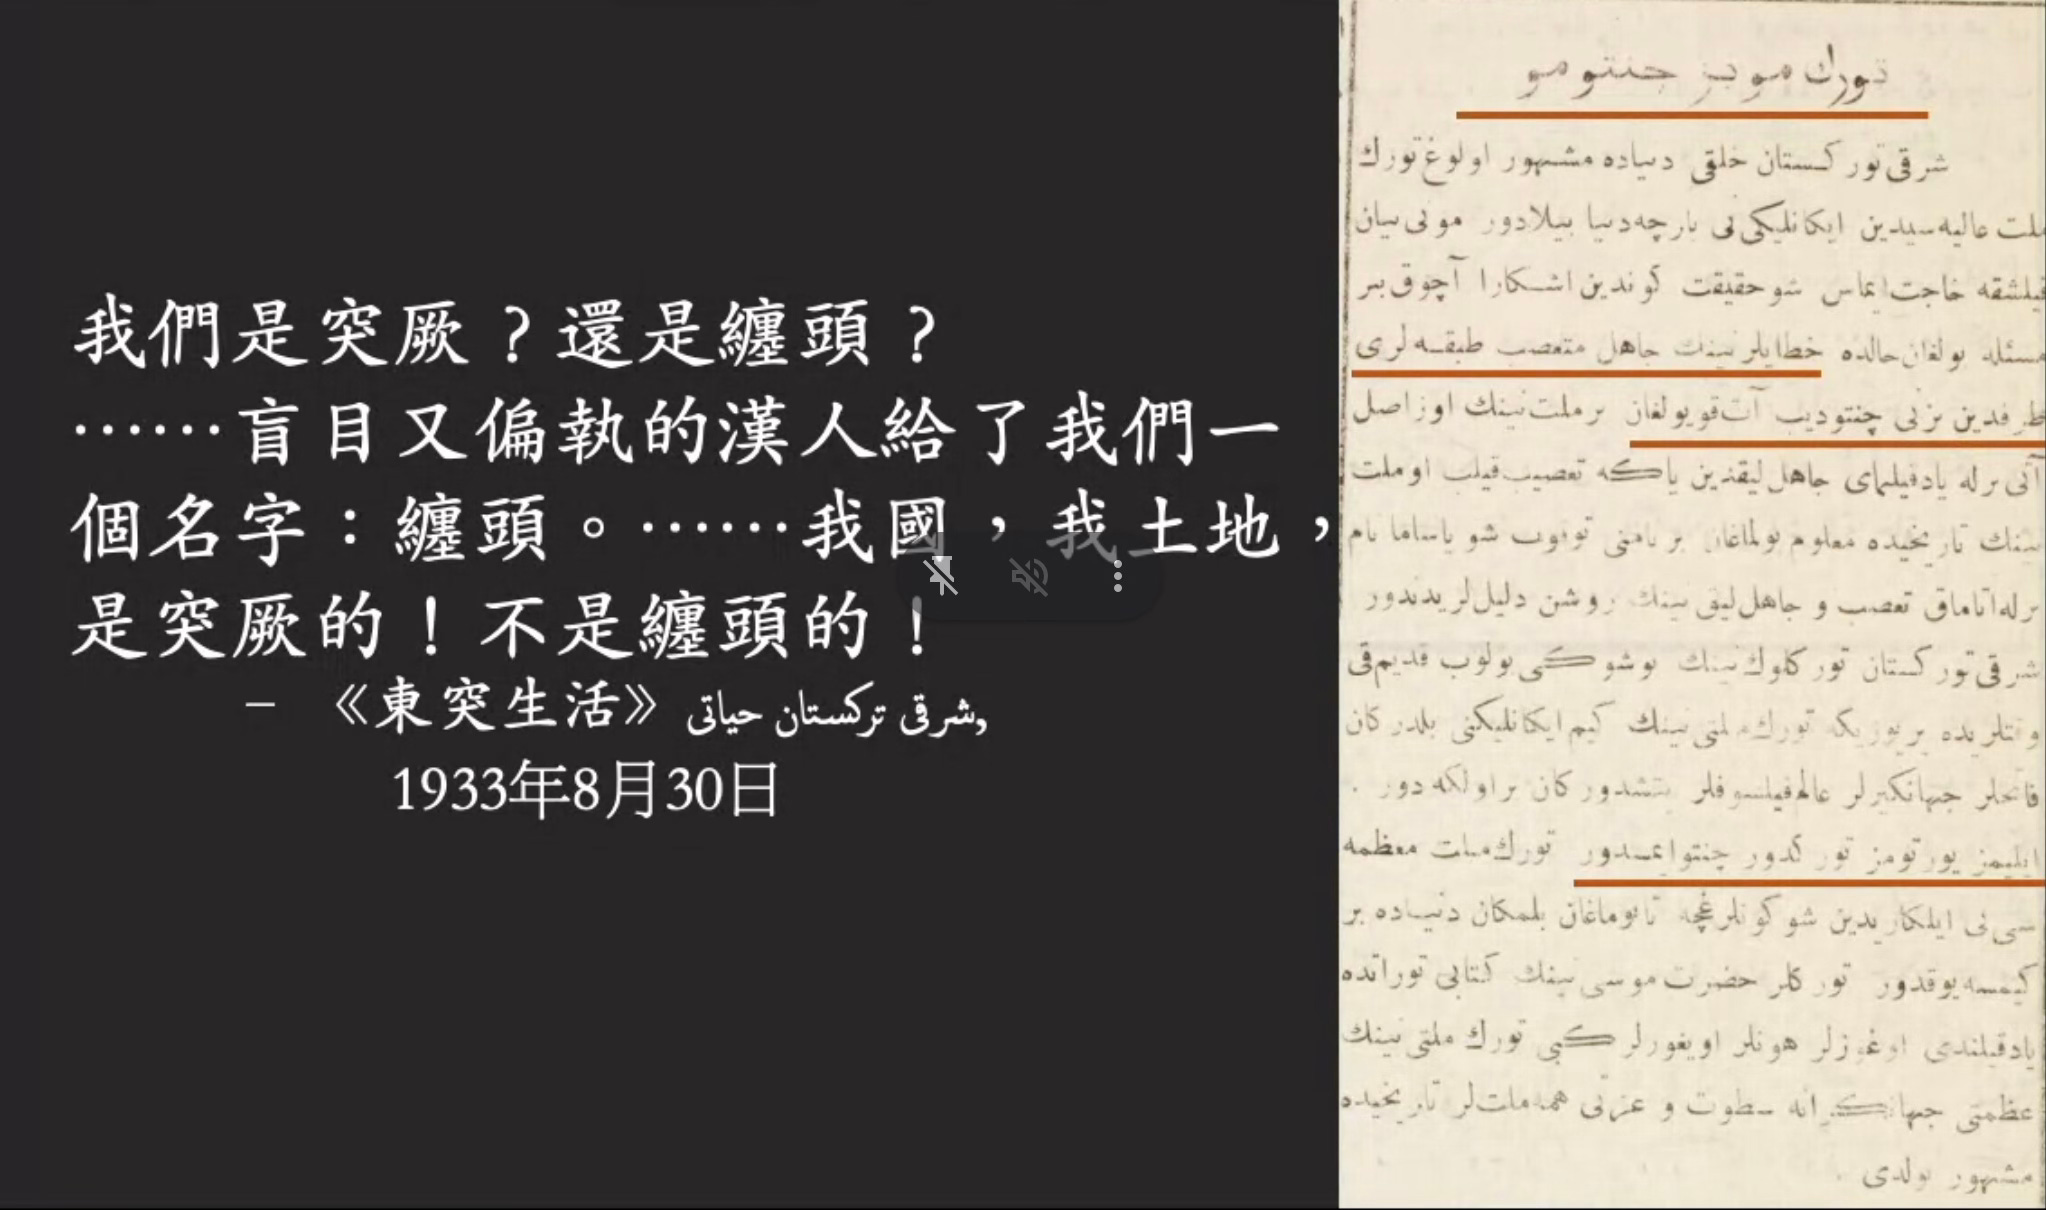 我們是突厥？還是纏頭？
……盲目又偏執的漢人給了我們一
個名字：纏頭。……我國，我土地，
是突厥的！不是纏頭的！
– 《東突生活》شرقی ترکستان حیاتی,
1933年8月30日
تورك موبز جنتو مو
شرقی تورکستان خلقی دنیاده مشهور اولوغ تورك
ملت عالیه سیدین ایکانلیکی نی بارچه دنیا بیلادور مونی بیان
قیلشقه حاجت ایماس شو حقیقت کوندین اشکارا آچوق بیر
مسئله بولغان حالده خطایلرنینك جاهل متعصب طبقه لری
طرفدین بزنی چنتو دیب آت قویولغان بر ملت نینك اوز اصل
آتی برله یاد قیلمای جاهل لیقدین یاکه تعصیب قیلب او ملت
نینك تاریخیده معلوم بولماغان بر نامنی توقوب شو یاساما نام
برله اتاماق تعصب و جاهل لیقی نینك روشن دلیل لریدندور
شرقی تورکستان تورکلوك نینك بوشوکی بولوب قدیم قی
وقتلریده یر یوزیکه تورك ملتی نینك کیم ایکانلیکنی بلدرکان
فاتحلر جهانکیرلر عالم فیلسوفلر یتشدورکان بر اولکه دور .
ایلیمز یورتومز تورکدور چنتو ایمسدور تورك ملت معظمه
سی نی ایلکاریدین شو کونلرغچه تانوماغان بلمکان دنیاده بر
کیمسه یوقدور تورکلر حضرت موسی نینك کتابی توراتده
یاد قیلندی اوغوزلر هونلر اویغورلر کبی تورك ملتی نینك
عظمتی جهانکیرانه سطوت و عزتی همه ملت لر تاریخیده
مشهور بولدی .